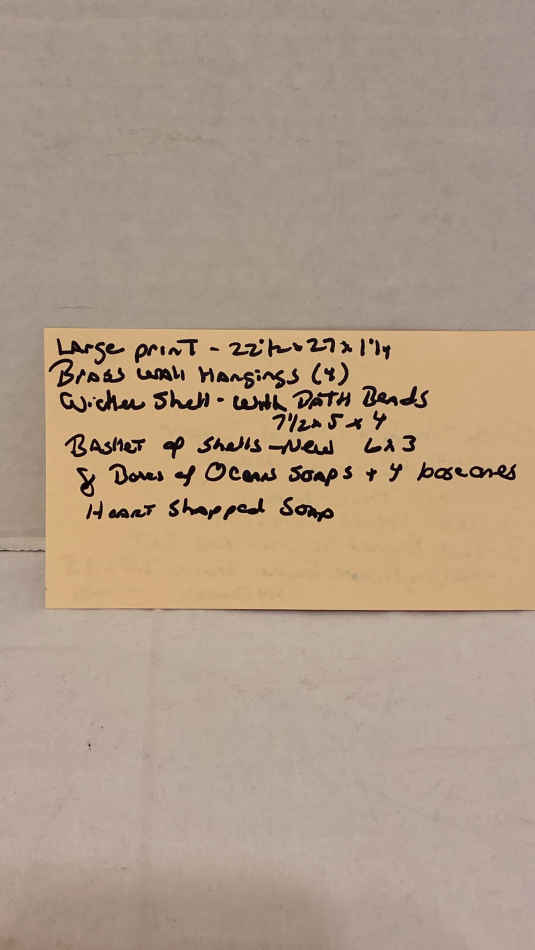 Large print - 22 1/2 x 27 x 1 1/4
Brass wall Hangings (4)
Wicker Shell - With BATH Beads
7 1/2 x 5 x 4
Basket of Shells - New 6 x 3
8 Boxes of Ocean Soaps + 4
Heart Shapped Soap